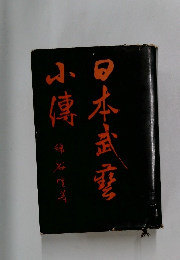 日本武藝
小傳